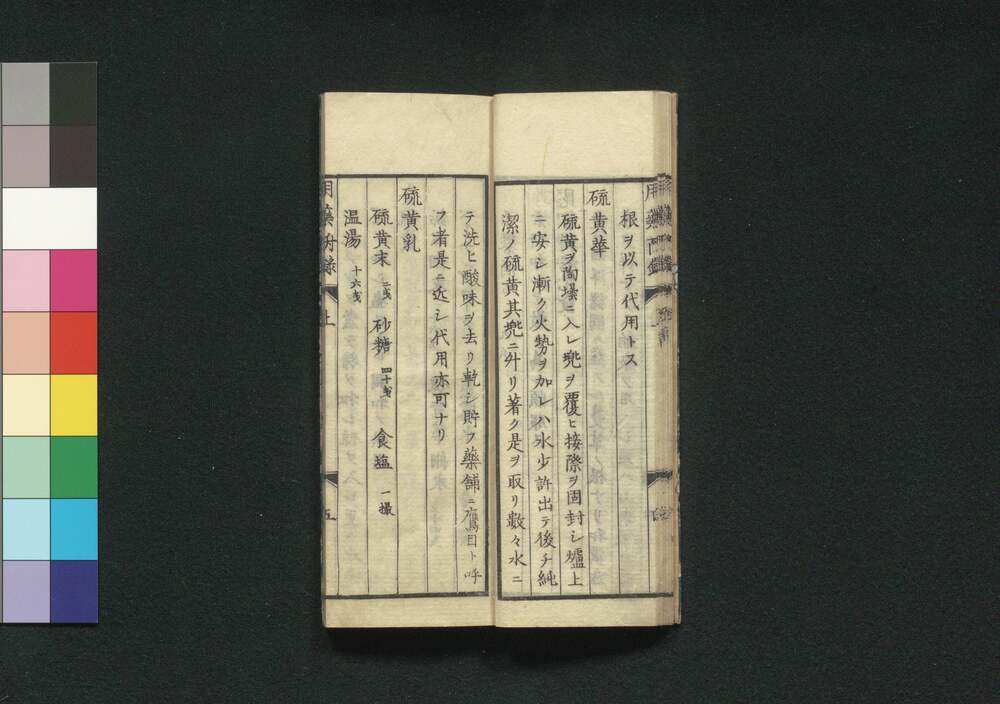 根ヲ以テ代用トス
硫黄華
硫黄ヲ陶堝ニ入レ兠ヲ覆ヒ接際ヲ固封シ爐上
ニ安シ漸ク火勢ヲ加レハ水少許出テ後チ純
潔ノ硫黄其兠ニ升リ著ク是ヲ取リ数々水ニ
テ洗ヒ酸味ヲ去リ乾シ貯フ藥舗ニ鷹目ト呼
フ者是ニ近シ代用亦可ナリ
硫黄乳
硫黄末 二戔 砂糖 四十戔 食塩 一撮
温湯 十六戔
用藥附録 上 五